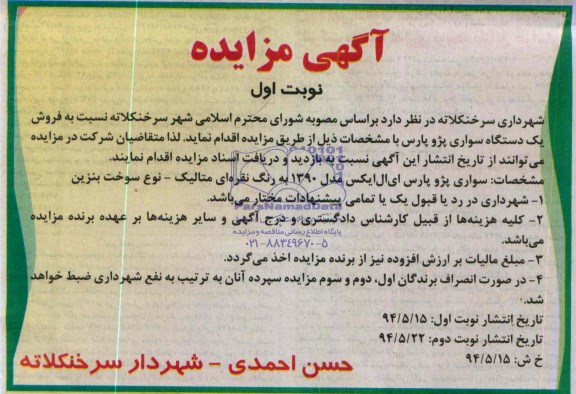 آگهی مزایده
نوبت اول
شهرداری سرخنکلاته در نظر دارد براساس مصوبه شورای محترم اسلامی شهر سرخنکلاته نسبت به فروش
یک دستگاه سواری پژو پارس با مشخصات ذیل از طریق مزایده اقدام نماید. لذا متقاضیان شرکت در مزایده
می‌توانند از تاریخ انتشار این آگهی نسبت به بازدید و دریافت اسناد مزایده اقدام نمایند.
مشخصات: سواری پژو پارس ای‌ال‌ایکس مدل ۱۳۹۰ به رنگ نقره‌ای متالیک - نوع سوخت بنزین
۱- شهرداری در رد یا قبول یک یا تمامی پیشنهادات مختار می‌باشد.
ParsNamadData
۲- کلیه هزینه‌ها از قبیل کارشناس دادگستری و درج آگهی و سایر هزینه‌ها بر عهده برنده مزایده
می‌باشد.
پایگاه اطلاع رسانی مناقصه و مزایده
۰۲۱-۸۸۳۴۹۶۷۰-۵
۳- مبلغ مالیات بر ارزش افزوده نیز از برنده مزایده اخذ می‌گردد.
۴- در صورت انصراف برندگان اول، دوم و سوم مزایده سپرده آنان به ترتیب به نفع شهرداری ضبط خواهد
شد.
تاریخ انتشار نوبت اول: ۹۴/۵/۱۵
تاریخ انتشار نوبت دوم: ۹۴/۵/۲۲
خ ش: ۹۴/۵/۱۵
حسن احمدی - شهردار سرخنکلاته